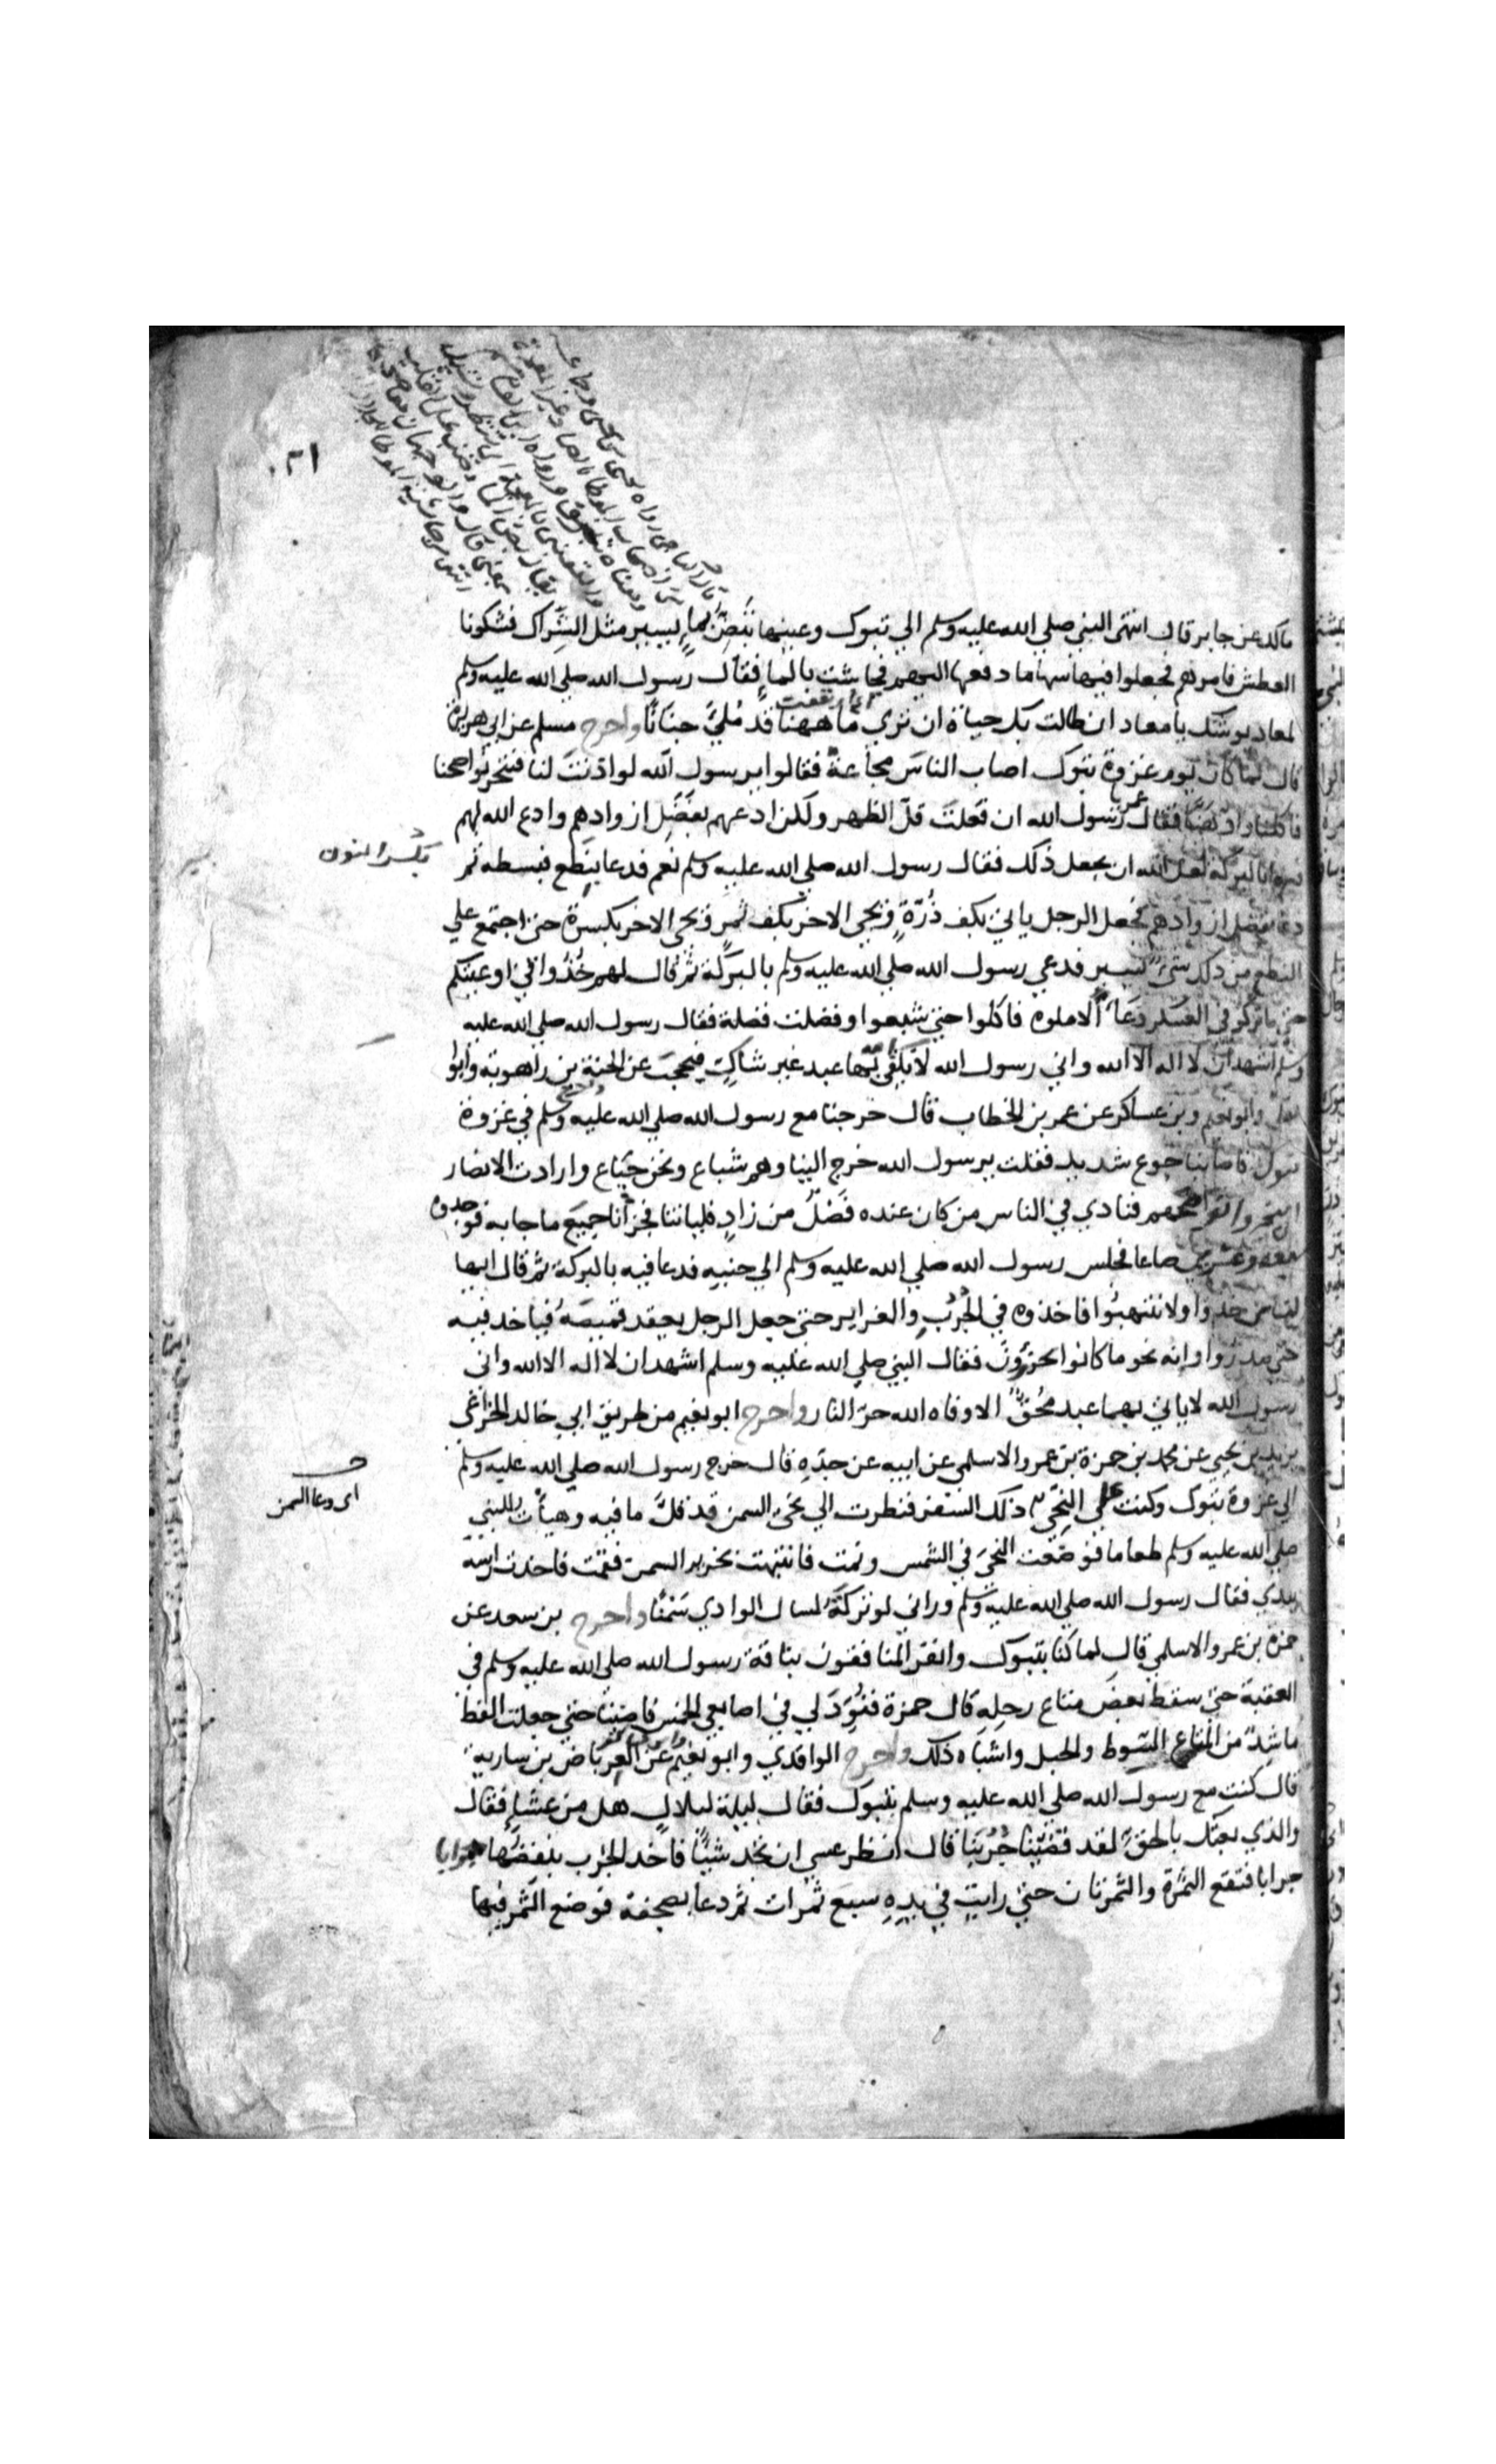 قال الباجي رواه يحيى بن يحيى وجماعة
من اصحاب الموطا بالصاد غير المعجمة
ومعناه تبرق ورواه ابن القاسم
والقعنبي بالمعجمة اي تقطر وتسيل
يقال بض الماء وضب على القلب
بمعنى قال والوجهان
انتهى من حاشية الموطا
مالك عن جابر قال انتهى النبي صلي الله عليه وسلم الي تبوك وعينها تبض بماءٍ يسير مثل الشِراك فشكونا
العطش فامرهم فجعلوا فيها سهاما دفعها اليهم فجاشت بالماءِ فقال رسول الله صلي الله عليه وسلم
لمعاد يوشك يا معاد ان طالت بك حياة ان تري ما ههنا قد مُليَّ جنانًا واخرج مسلم عن ابي هريرة
قال لما كان يوم غزوة تبوك اصاب الناسَ مجاعة فقالوا يرسول الله لو اذنتَ لنا فننحر نواضحنا
فاكلنا وادهنا فقال عمر رسول الله ان فعلتَ قلّ الظهر ولكن ادعهم بفَضَلِ ازوادهم وادع الله لهم
فيها بالبركة لعل الله ان يجعل ذلك فقال رسول الله صلي الله عليه وسلم نعم فدعا بنِطَع فبسطه ثم
بكسر النون
دعا بفضل ازوادهم فجعل الرجل ياتي بكف ذُرّةٍ ويجي الاخر بكف ثمرٍ ويجي الاخر بكسرة حتي اجتمع علي
النطع من ذلك شيءٌ يسير فدعي رسول الله صلي الله عليه وسلم بالبركة ثم قال لهم خُذُوا في اوعيتكم
حتي ما تركو في العسكر وِعَاءً الا ملوه فاكلوا حتي شبعوا وفضلت فضلة فقال رسول الله صلي الله عليه
وسلم اشهد ان لا اله الا الله واني رسول الله لا يلقي بهما عبد غير شاكٍ فيحجبَ عن الجنة بن راهويه وابوا
وابو نعيم وبن عساكر عن عمر بن الخطاب قال خرجنا مع رسول الله صلي الله عليه وسلم في غزوة
تبوك فاصابنا جوع شديد فقلت يرسول الله خرج الينا وهم شباع ونحن جياع وارادت الانصار
ان ينحروا نواضحهم فنادي في الناس من كان عنده فَضلٌ من زادٍ فلياتنا فجزانا جميعَ ما جا به فوجدوه
سبعة وعشرين صاعا فجلس رسول الله صلي الله عليه وسلم الي جنبِهِ فدعا فيه بالبركة ثم قال ايها
الناس خدوا ولا تنتهبُوا فاخذوه في الجُرُبِ والغراير حتي جعل الرجل يعقد قميصَهُ فياخد فيه
حتي صدروا وانه نحو ما كانوا يحزرون فقال النبي صلي الله عليه وسلم اشهد ان لا اله الا الله واني
رسول الله لا ياتي بهما عبد محُقٌ الا وقاه الله حرّ النار واخرج ابو نعيم من طريق ابي خالد الخزاعي
يزيد بن يحيي عن محمد بن حمزة بن عمرو الاسلمي عن ابيه عن جدّهِ قال خرج رسول الله صلي الله عليه وسلم
الي غزوة تبوك وكنت علي النِحَي ذلك السفر فنطرت الي نحي السمن قد قلَّ ما فيه وهيأت للنبي
اي وعاء السمن
صلي الله عليه وسلم طعاما فوضعت النحي في الشمس ونمت فانتبهت بخرير السمن فقمت فاخدت راسه
بيدي فقال رسول الله صلي الله عليه وسلم وراني لو تركتَهُ لسال الوادي سَمنًا واخرج بن سعد عن
حمزه بن عمرو الاسلمي قال لما كنا بتبوك وانفر المنافقون بناقة رسول الله صلي الله عليه وسلم في
العقبة حتي سقط بعضُ متاع رحلِهِ قال حمزة فنُوِّرَ لي في اصابعي الخمس فاضئنا حتي جعلت القط
ما شِدَّ من المتاع السوط والحبل واشباه ذلك واخرج الواقدي وابو نعيم عن العِرباض بن سارية
قال كنت مع رسول الله صلي الله عليه وسلم بتبوك فقال ليلة لبلالٍ هل من عَشاءٍ فقال
والذي بعثك بالحق لقد نفضنا جُرُبَنا قال انظر عسي ان تجد شيئًا فاخد الجرب ينفضُها جرابا
جرابا فتقع التمرة والتمرتان حتي رايت في يدِهِ سبعَ تمرات ثم دعا بصحفة فوضع التمر فيها